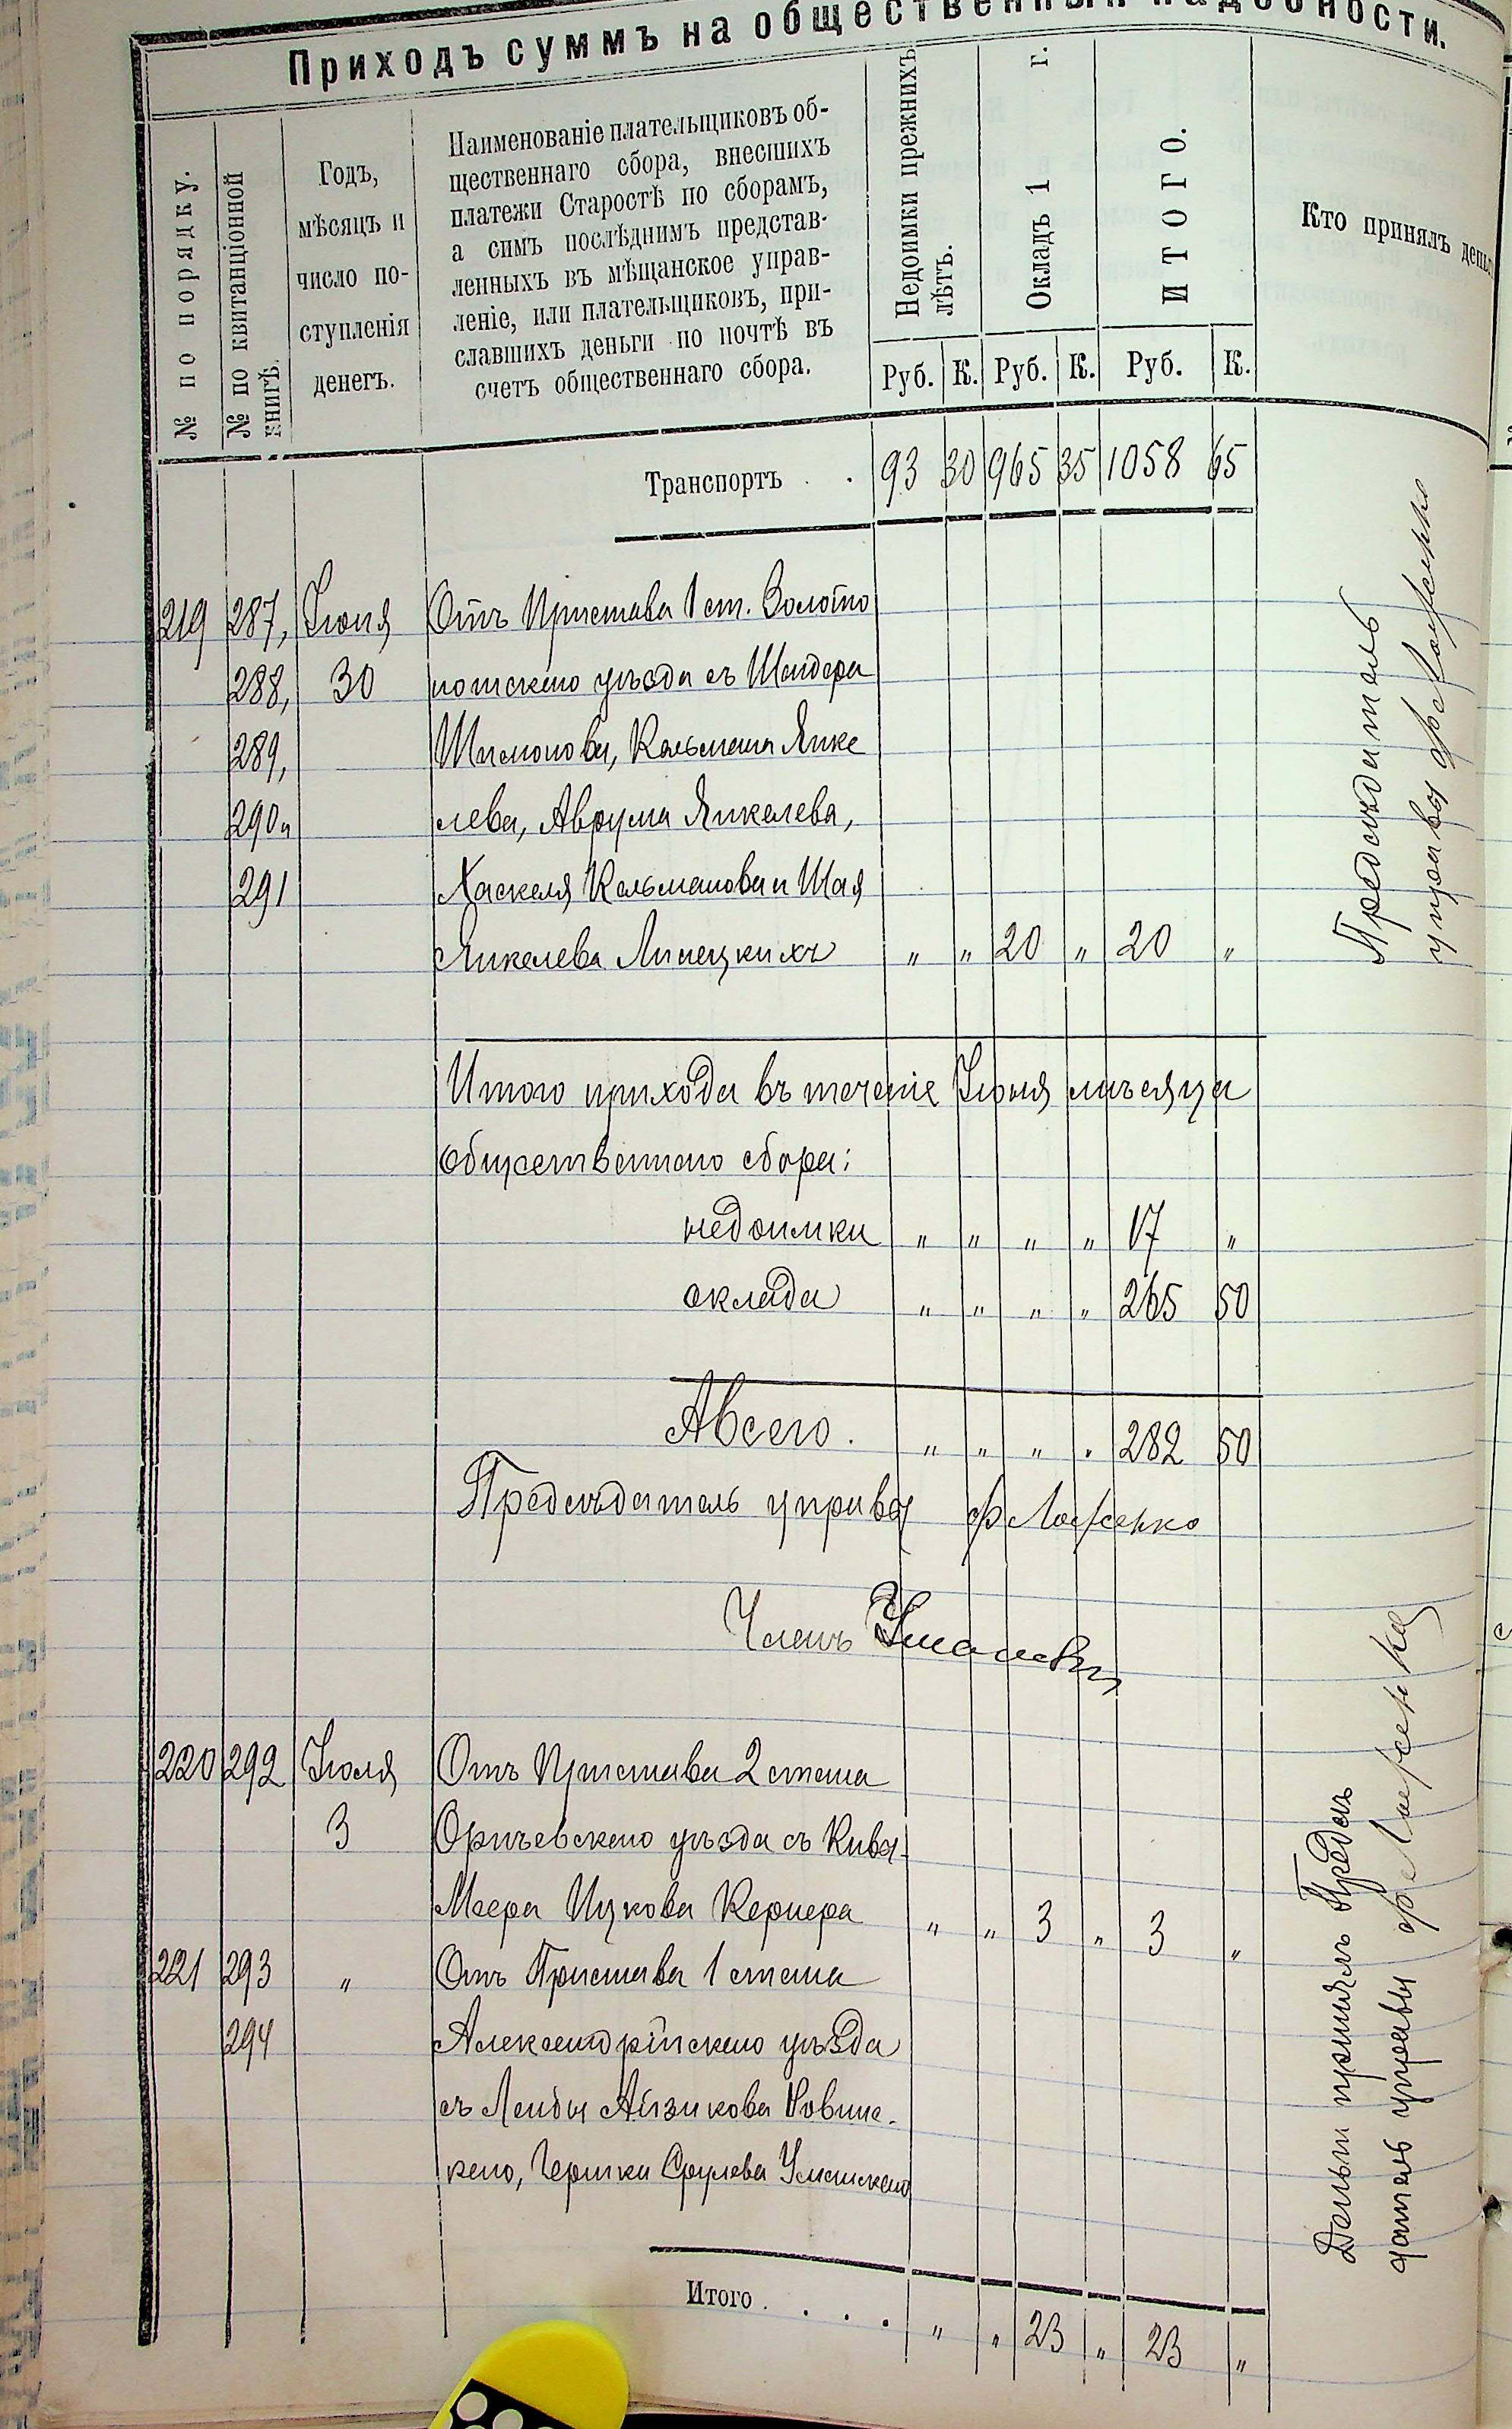 Приходъ суммъ на общественныя надобности.
№ по порядку.
№ по квитанціонной
книгѣ.
Годъ,
мѣсяцъ и
число по-
ступленія
денегъ.
Наименованіе плательщиковъ об-
щественнаго сбора, внесшихъ
платежи Старостѣ по сборамъ,
а симъ послѣднимъ представ-
ленныхъ въ мѣщанское управ-
леніе, или плательщиковъ, при-
славшихъ деньги по почтѣ въ
счетъ общественнаго сбора.
Недоимки прежнихъ
лѣтъ.
Окладъ 1 г.
ИТОГО.
Кто принялъ деньг
Руб. К. Руб. К. Руб. К.
Транспортъ . . 93 30 965 35 1058 65
219 287, Іюня Отъ Пристава 1 ст. Золото
288, 30 ношскаго уѣзда съ Шендера
289, Шимонова, Кальмана Янке
290 и лева, Аврума Янкелева,
291 Хаскеля Кальманова и Шая
Янкелева Линецкихъ " " 20 " 20 "
Предсѣдатель
управы Ф Ложенко
Итого прихода въ теченіе Іюня мѣсяца
общественнаго сбора:
недоимки " " " " 17 "
оклада " " " " 265 50
А всего . " " " " 282 50
Предсѣдатель управы Ф Ложенко
Членъ
220 292 Іюля Отъ Пристава 2 стана
3 уѣзда съ Кивы-
Меера Ицкова Кернера " " 3 " 3 "
221 293 " Отъ Пристава 1 стана
294 Александрійскаго уѣзда
съ Лейбы Айзикова Ровинс-
каго, Гершки Срулева Уманскаго
Деньги принялъ Предсѣ
датель управы Ф Ложенко
Итого . . . . " " 23 " 23 "